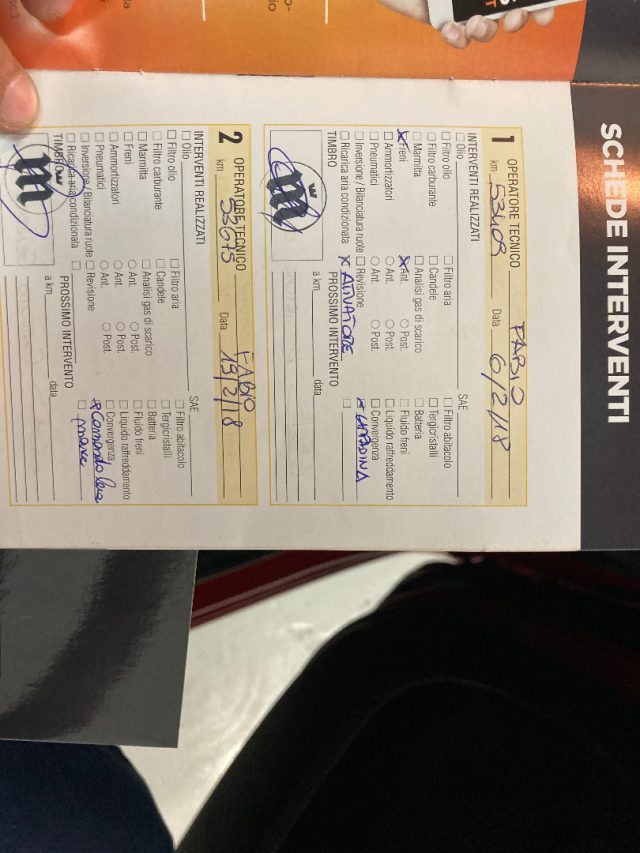 SCHEDE INTERVENTI
1 OPERATORE TECNICO FABIO
km 53403 Data 6/2/18
INTERVENTI REALIZZATI
□ Olio SAE
□ Filtro olio □ Filtro aria □ Filtro abitacolo
□ Filtro carburante □ Candele □ Tergicristalli
□ Marmitta □ Analisi gas di scarico □ Batteria
x Freni x Ant. ○ Post. □ Fluido freni
□ Ammortizzatori ○ Ant. ○ Post. □ Liquido raffreddamento
□ Pneumatici ○ Ant. ○ Post. □ Convergenza
□ Inversione / Bilanciatura ruote □ Revisione
□ Ricarica aria condizionata x ATTUATORE
TIMBRO PROSSIMO INTERVENTO
a km data
m
2 OPERATORE TECNICO FABIO
km Data 19/2/18
INTERVENTI REALIZZATI
□ Olio SAE
□ Filtro olio □ Filtro aria □ Filtro abitacolo
□ Filtro carburante □ Candele □ Tergicristalli
□ Marmitta □ Analisi gas di scarico □ Batteria
□ Freni ○ Ant. ○ Post. □ Fluido freni
□ Ammortizzatori ○ Ant. ○ Post. □ Liquido raffreddamento
□ Pneumatici ○ Ant. ○ Post. □ Convergenza
□ Inversione / Bilanciatura ruote □ Revisione x Comando leva
□ Ricarica aria condizionata □ □ marce
TIMBRO PROSSIMO INTERVENTO
a km data
m